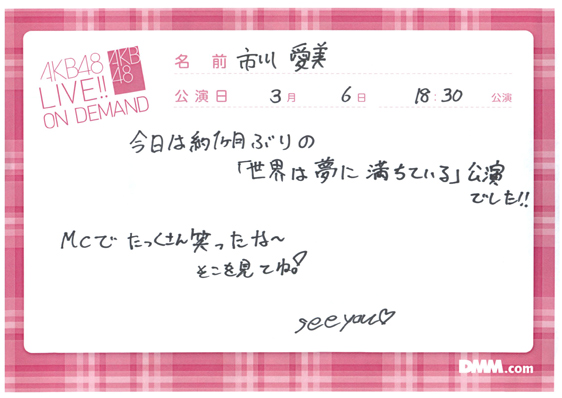 AKB48
LIVE!!
ON DEMAND
AKB
48
名前 市川 愛美
公演日 3月 6日 18:30 公演
今日は約1ヶ月ぶりの
「世界は夢に満ちている」公演
でした!!
MCで たっくさん笑ったな〜
そこを見てね!
see you♡
DMM.com